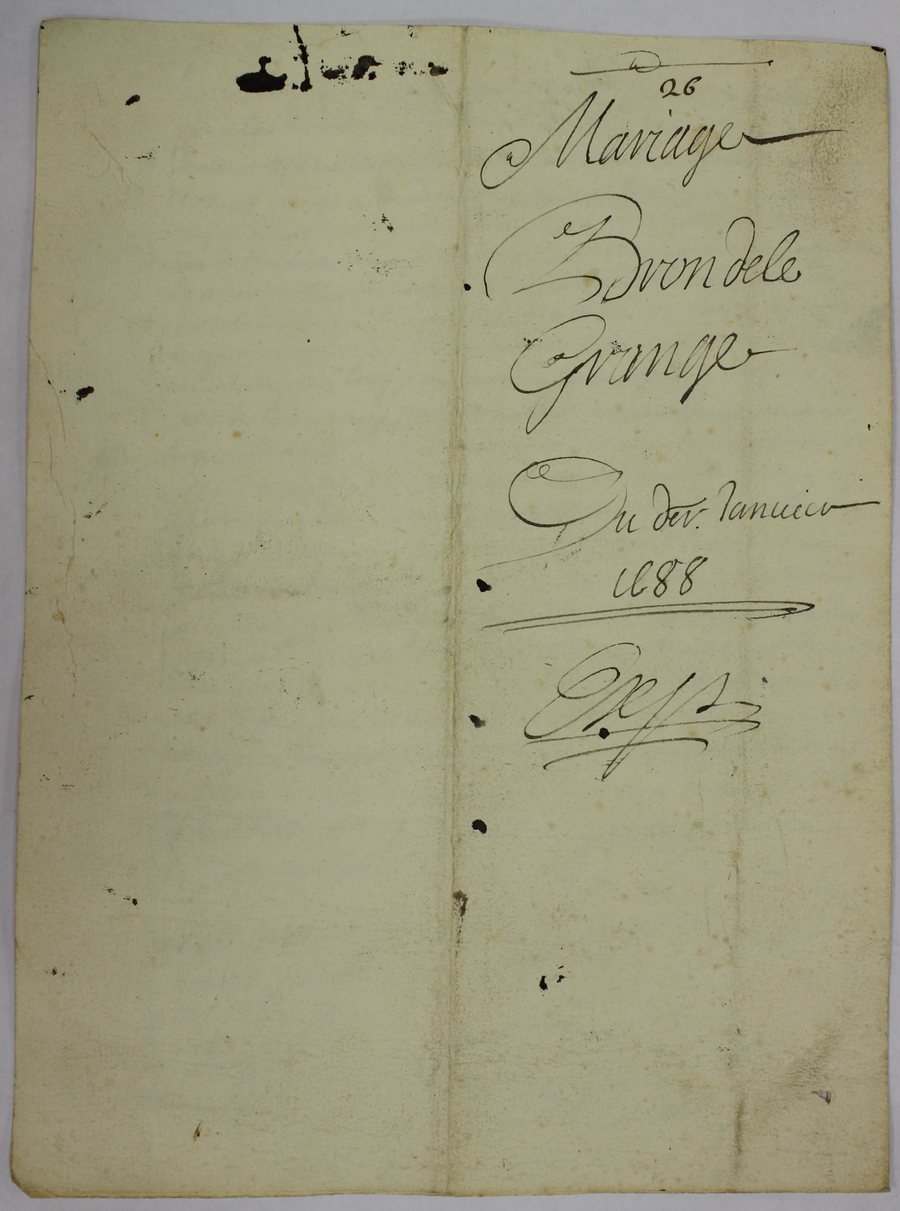 26
Mariage
Brondele
Grange
Du der. Janvier
1688
Exp